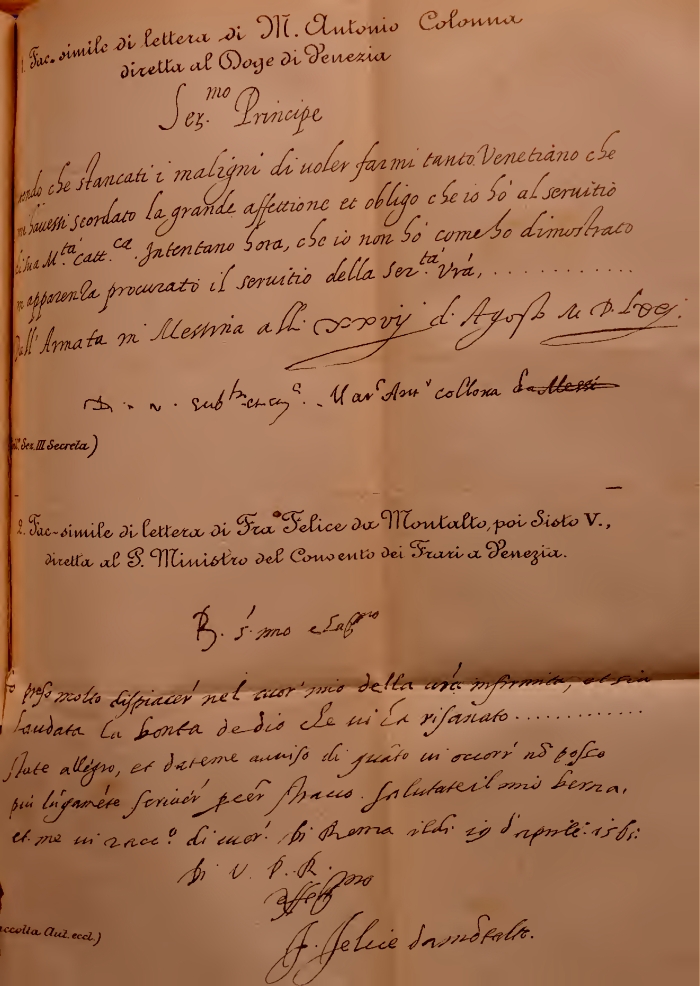 1. Fac-simile di lettera di M. Antonio Colonna
diretta al Doge di Venezia
Ser.mo Principe
che stancati i maligni di uoler farmi tanto Venetiano che
mi hauessi scordato la grande affettione et obligo che io hò al seruitio
di sua M.tà Catt.ca. Intentano hora, che io non hò come ho dimostrato
in apparenza procurato il seruitio della Ser.tà Vrã, . . . . . . . . . . .
Dall' Armata in Messina alli xxvij d' Agosto
collona
Ser. III Secreta)
2. Fac-simile di lettera di Fra Felice da Montalto, poi Sisto V.,
diretta al P. Ministro del Convento dei Frari a Venezia.
R.
preso molto dispiacer nel cuor mio della urã infirmità, et sia
laudata la bonta de dio che ui ha risanato . . . . . . . . . . . .
state allegro, et dateme auuiso di quãto ui occorr nõ posso
piu lũgamẽte scriuer p eẽr stracco. salutate il mio
et me ui racc.º di cuor. Di Roma il di 19 d' aprile.
Di V. P. R.
F. Felice da mõtalto.
accolta Aut. eccl.)